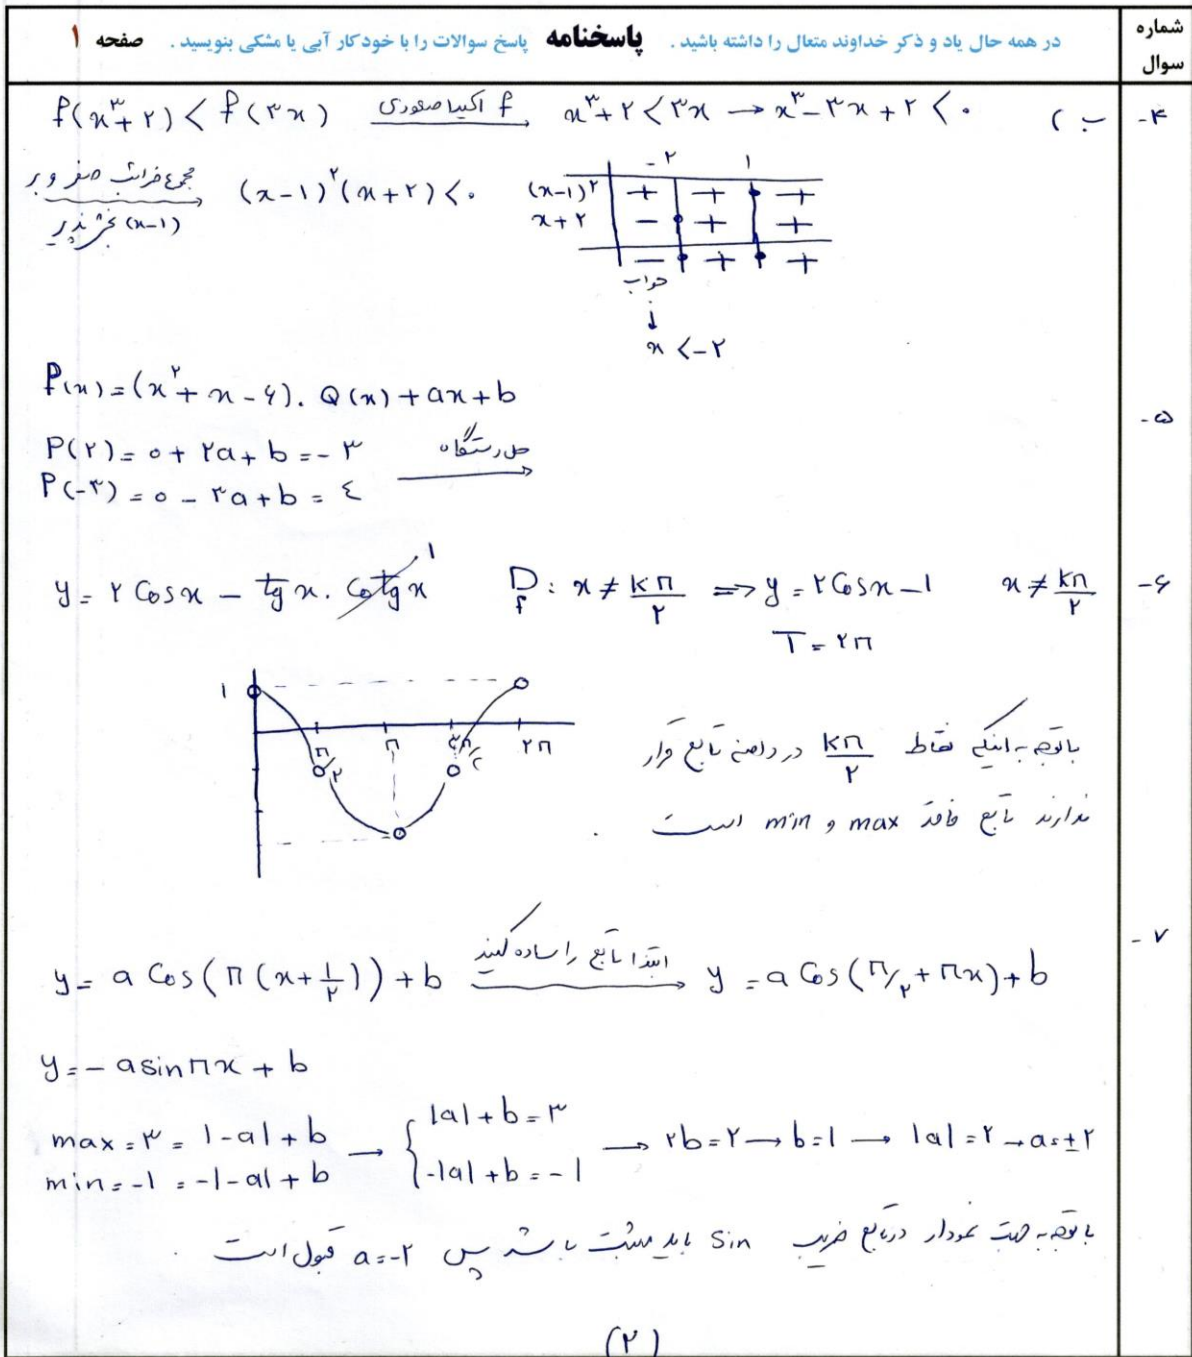 شماره سوال
در همه حال یاد و ذکر خداوند متعال را داشته باشید . پاسخنامه پاسخ سوالات را با خودکار آبی یا مشکی بنویسید . صفحه ۱
۴- ب )
f(x³+۲) < f(۳x) f اکیدا صعودی → x³+۲ < ۳x → x³-۳x+۲ < ۰
مجموع ضرائب صفر و بر (x-۱) بخش‌پذیر → (x-۱)²(x+۲) < ۰
-۲ ۱
(x-۱)² + + +
x+۲ - + +
- + +
جواب
↓
x < -۲
۵-
P(x) = (x²+x-۶). Q(x) + ax+b
P(۲) = ۰ + ۲a + b = -۳ حل دستگاه →
P(-۳) = ۰ - ۳a + b = ۴
۶-
y = ۲ Cosx - tgx . Cotgx ۱ D f : x ≠ kπ/۲ ⇒ y = ۲Cosx - ۱ x ≠ kπ/۲
T = ۲π
۱ π/۲ π ۳π/۲ ۲π
با توجه به اینکه نقاط kπ/۲ در دامنه تابع قرار
ندارند تابع فاقد max و min است .
۷-
y = a Cos(π(x+۱/۲)) + b ابتدا تابع را ساده کنید → y = a Cos(π/۲ + πx) + b
y = - a sin πx + b
max = ۳ = |-a| + b → { |a| + b = ۳ → ۲b = ۲ → b = ۱ → |a| = ۲ → a = ±۲
min = -۱ = -|-a| + b -|a| + b = -۱
با توجه به جهت نمودار در تابع ضریب Sin باید مثبت باشد پس a=-۲ قبول است .
(۲)